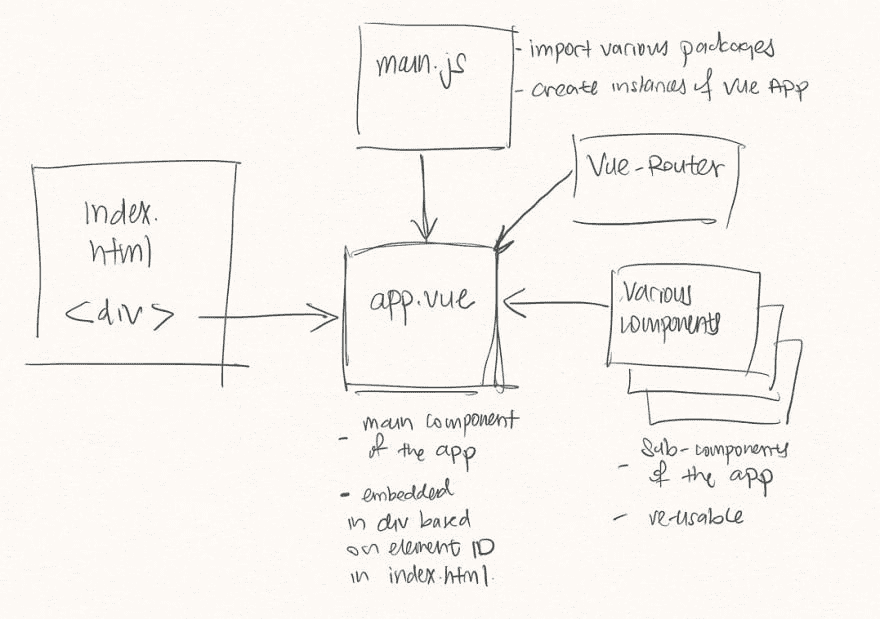 main.js
- import various packages
- create instances of Vue App
Vue-Router
Index.
html
<div>
app.vue
Various
components
- main component
of the app
- embedded
in div based
on element ID
in index.html.
- Sub-components
of the app
- re-usable